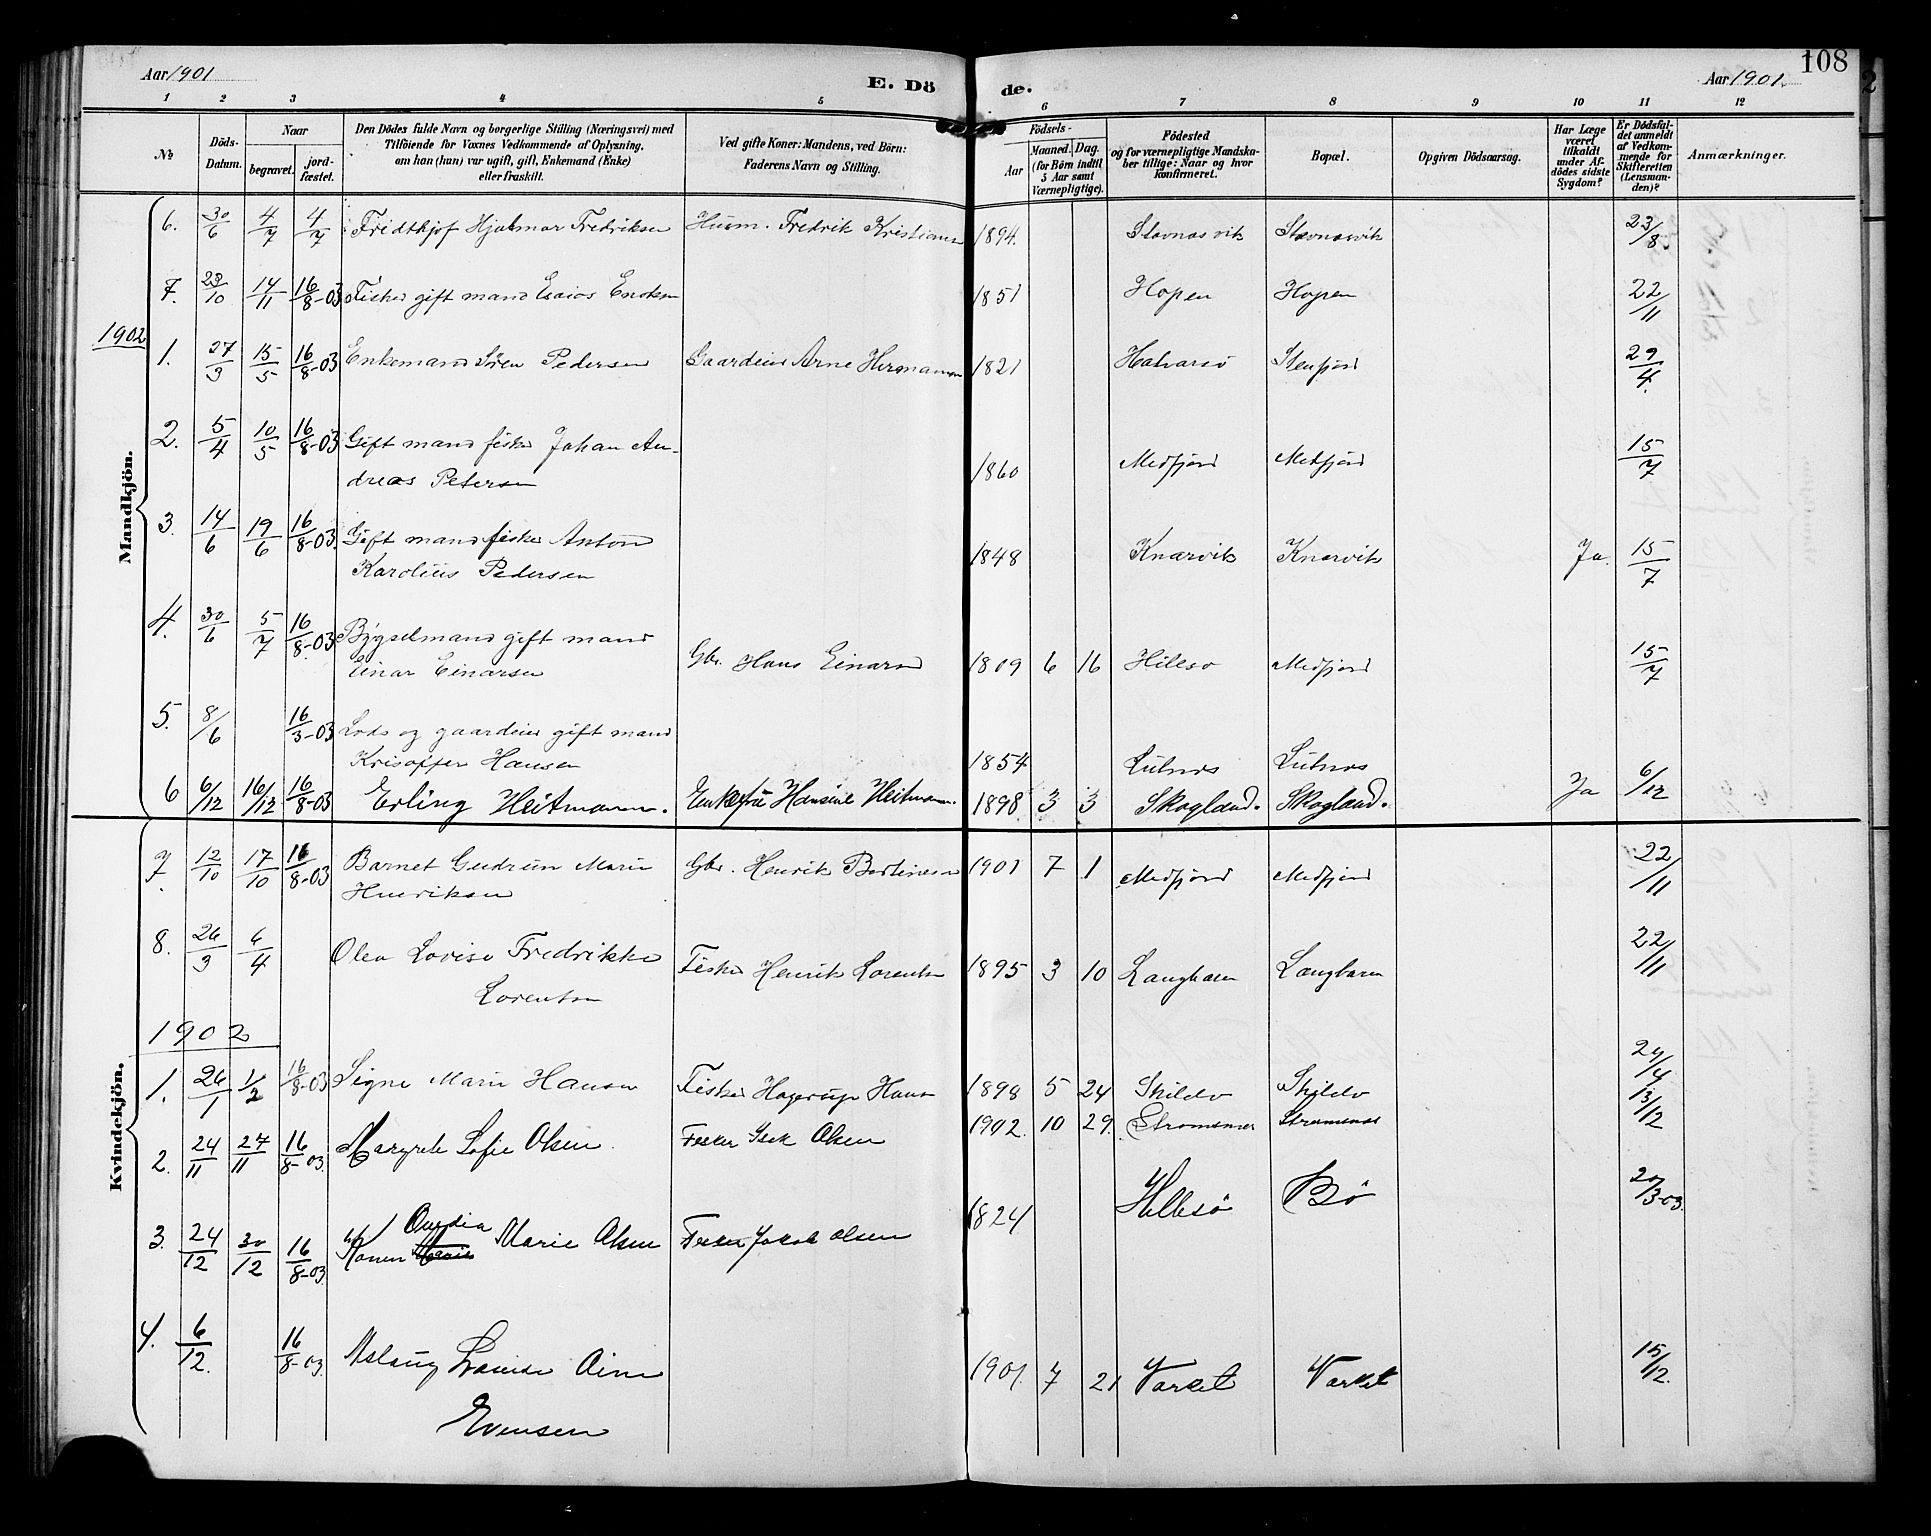 108
Aar 1901
E. Dö de.
Aar 1901.
1 2 3 4 5 6 7 8 9 10 11 12
No
Döds-Datum.
Naar
begravet. jord-fæstet.
Den Dödes fulde Navn og borgerlige Stilling (Næringsvei) med
Tilföiende for Voxnes Vedkommende af Oplysning,
om han (hun) var ugift, gift, Enkemand (Enke)
eller fraskilt.
Ved gifte Koner: Mandens, ved Börn:
Faderens Navn og Stilling.
Födsels-
Aar
Maaned. Dag.
(for Börn indtil
5 Aar samt
Værnepligtige).
Födested
og for værnepligtige Mandska-
ber tillige: Naar og hvor
konfirmeret.
Bopæl.
Opgiven Dödsaarsag.
Har Læge
været
tilkaldt
under Af-
dödes sidste
Sygdom?
Er Dödsfal-
det anmeldt
af Vedkom-
mende for
Skifteretten
(Lensman-
den)?
Anmærkninger.
Mandkjön.
6. 30/6 4/7 4/7 Fridthjof Hjalmar Fredriksen Husm. Fredrik Kristians 1894. Stavnæsvik Stavnæsvik 23/8
7. 23/10 14/11 16/8-03 Fisker gift mand Esaios Enoksen 1851 Hopen Hopen 22/11
1902
1. 27/3 15/5 16/8-03 Enkemand Sören Pedersen Gaardeier Arne Hermansen 1821 Halvarsö Stenfjord 29/4
2. 5/4 10/5 16/8-03 Gift mand fisker Johan An-
dreas Petersen 1860 Medfjord Medfjord 15/7
3. 14/6 19/6 16/8-03 Gift mand fisker Anton
Karolius Pedersen 1848 Knarvik Knarvik Ja. 15/7
4. 30/6 5/7 16/8-03 Bygselmand gift mand
Einar Einarsen Gbr. Hans Einarsen 1809 6 16 Hillesö Medfjord 15/7
5. 8/6 16/3-03 Lods og gaardeier gift mand
Krisoffer Hansen 1854 Lutnæs Lutnæs
6 6/12 16/12 16/8-03 Erling Heitmann. Enkefru Hansine Heitmann. 1898 3 3 Skogland. Skogland. Ja 6/12
Kvindekjön.
7. 12/10 17/10 16/8-03 Barnet Gudrun Marie
Henriksen Gbr. Henrik Bertinesen 1901 7 1 Medfjord Medfjord 22/11
8. 26/3 6/4 Olea Lovise Fredrikke
Lorentsen Fisker Henrik Lorentsen 1895 3 10 Langbaren Langbaren 22/11
1902
1. 26/1 1/2 16/8-03 Signe Marie Hansen Fisker Hagerup Hans 1898 5 24 Skildv Skildv 24/4
2. 24/11 27/11 16/8-03. Margrete Sofie Olsen. Fisker Isak Olsen 1902. 10 29. Stromsnes Stromsnes 13/12
3. 24/12 30/12 16/8-03. Konen Marie Marie Olsen Fisker Jakob Olsen 1824 Hillesö Bö 20/3-03.
4. 6/12. 16/8-03. Aslaug Lovise
Evensen 1901. 7 21 Vorket Vorket 15/12.